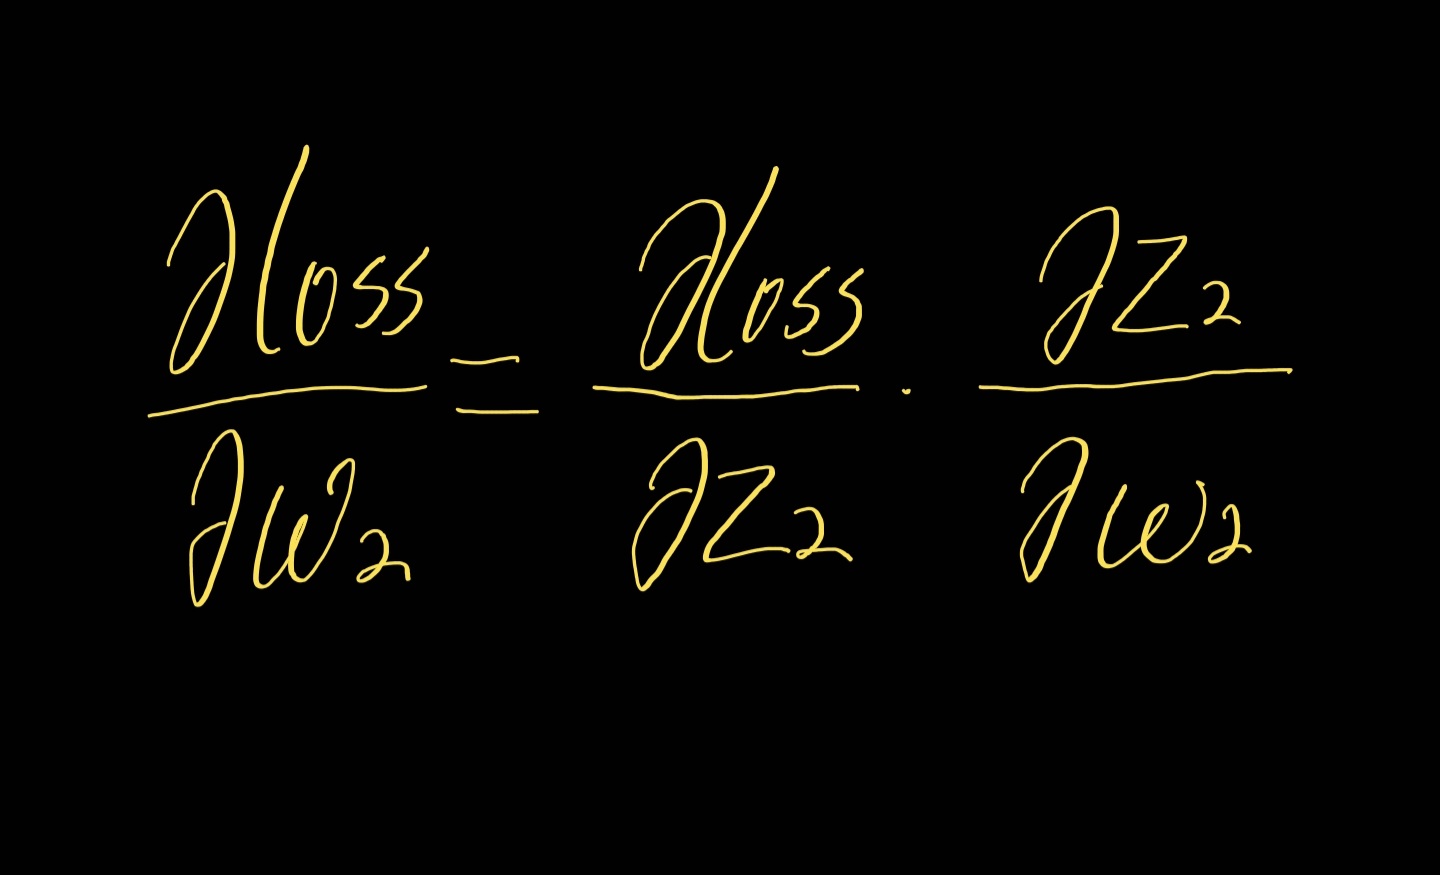 ∂loss/∂w₂ = ∂loss/∂z₂ · ∂z₂/∂w₂